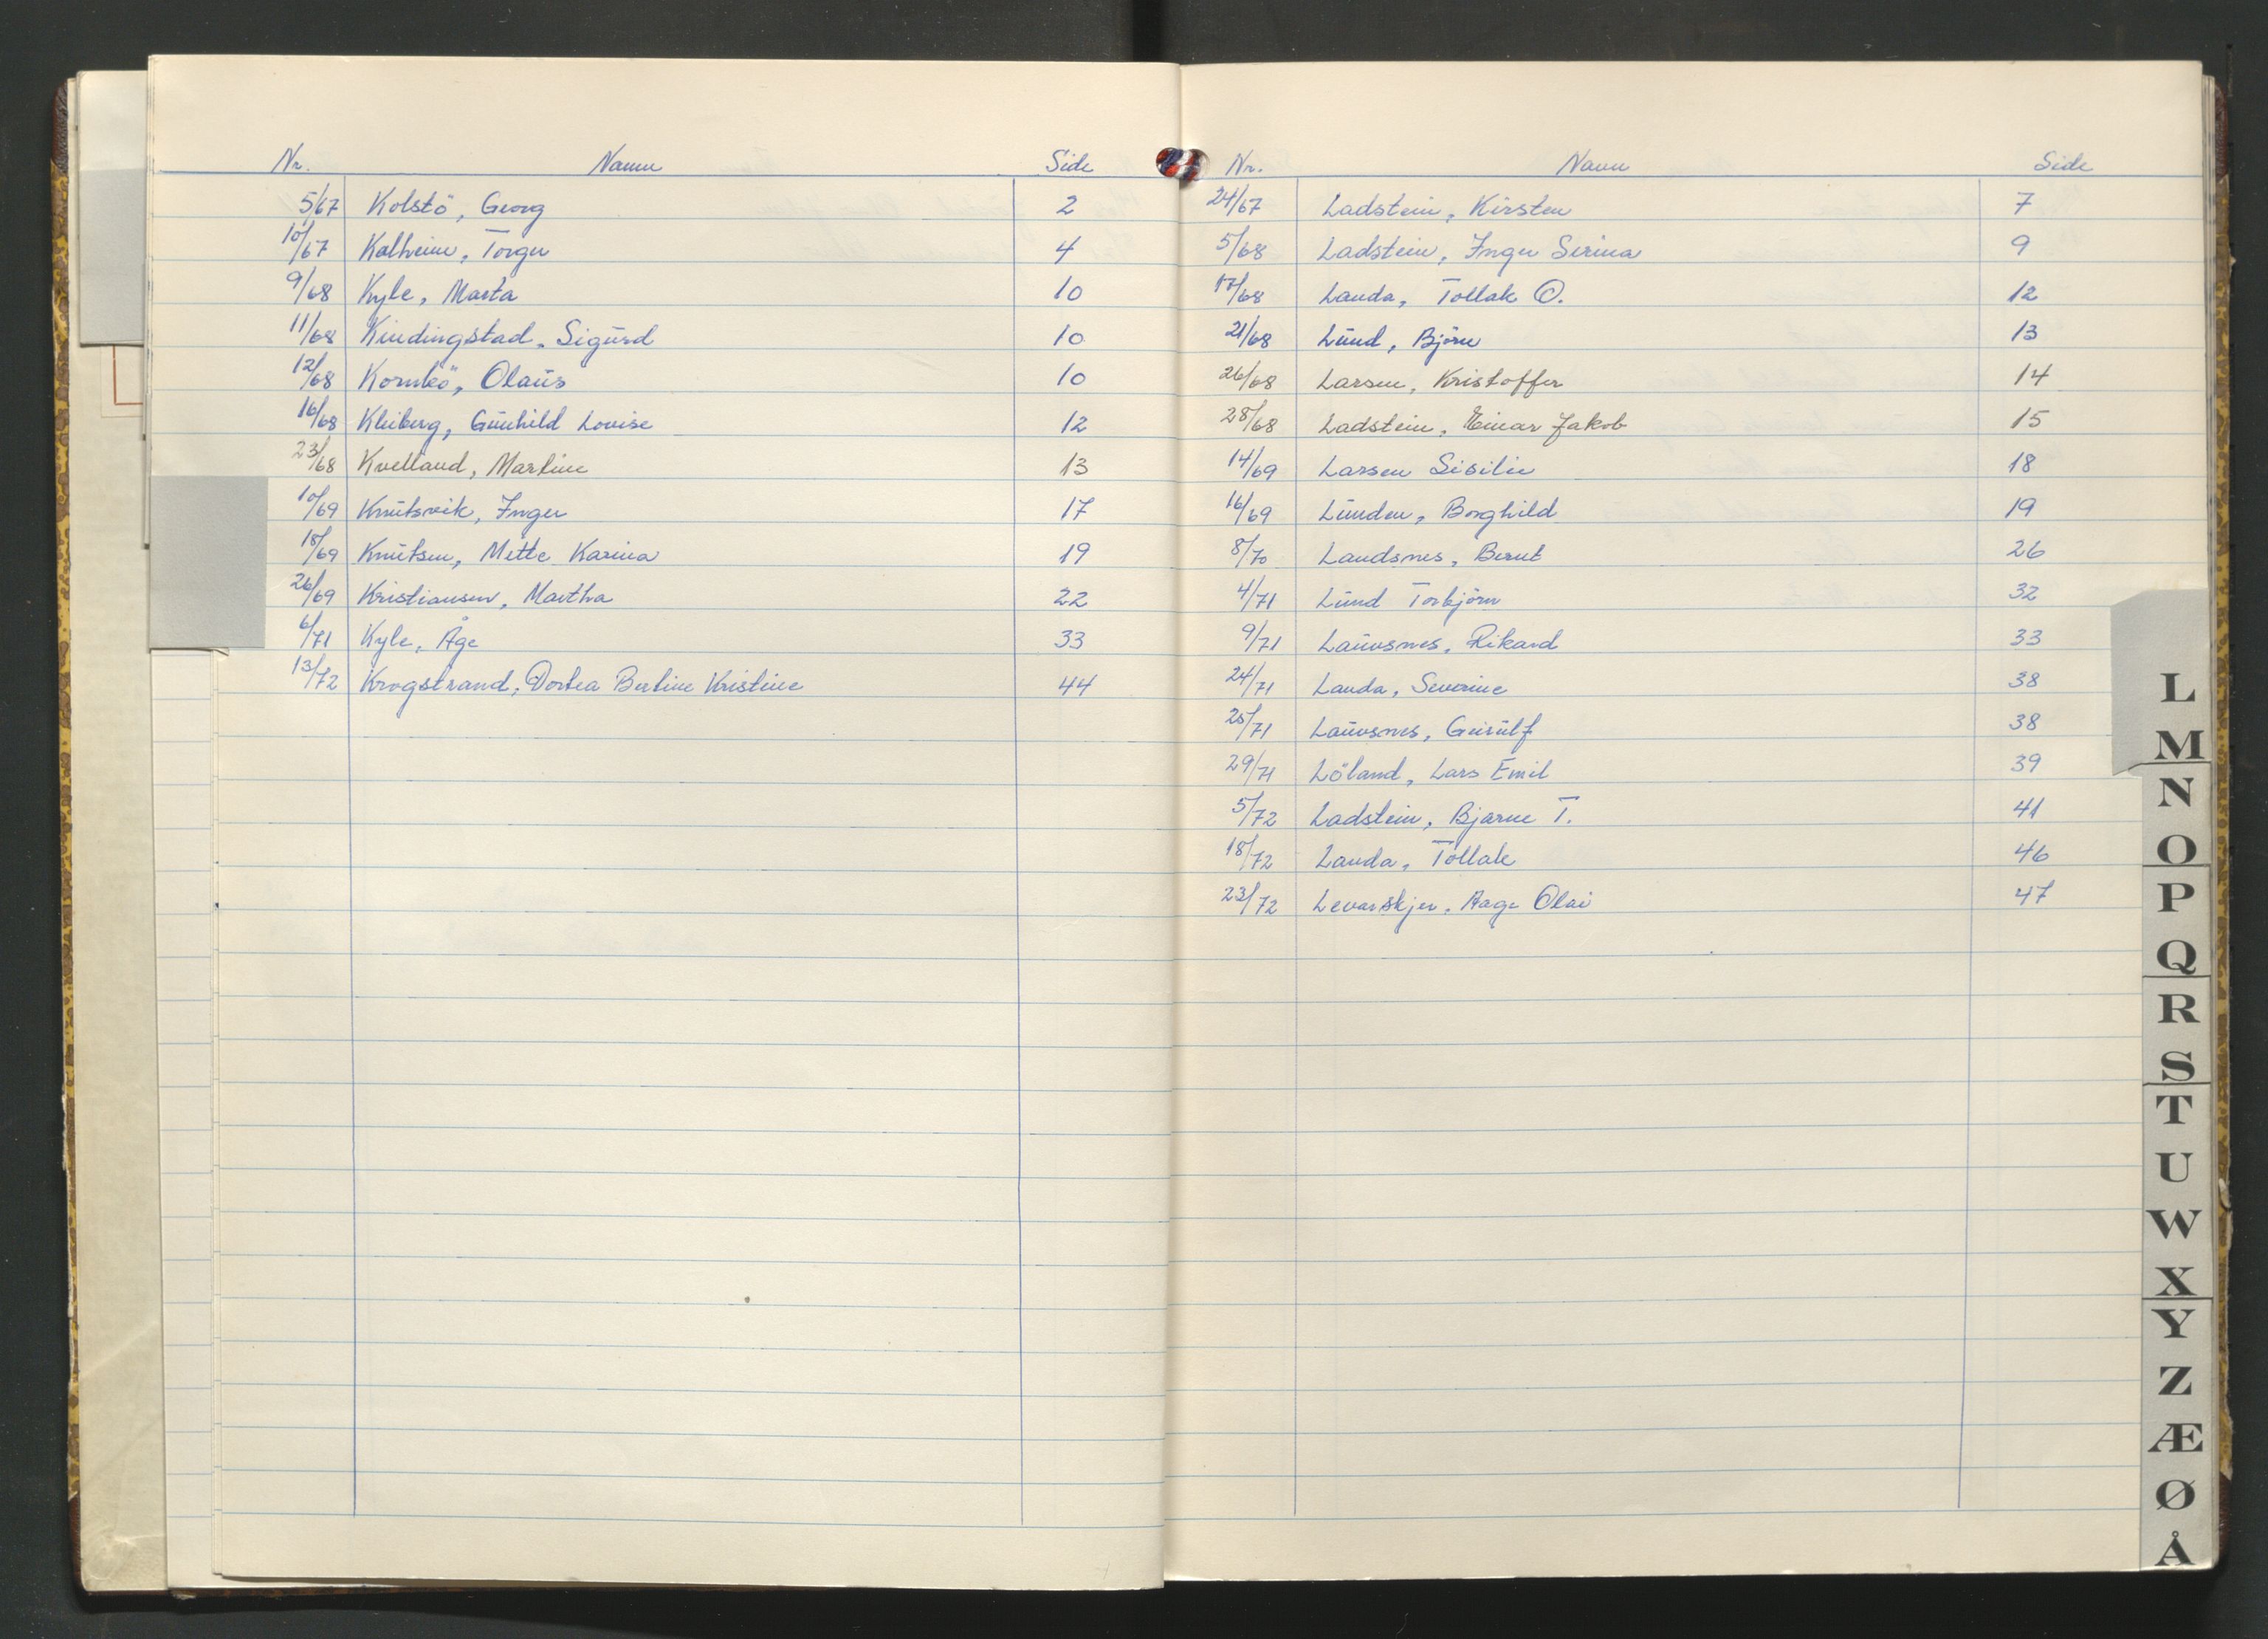 Nr. Namn Side
5/67 Kolstö, Georg 2
10/67 Kalheim, Torger 4
9/68 Kyle, Marta 10
11/68 Kindingstad, Sigurd 10
12/68 Olaus 10
16/68 Kleiberg, Gunhild Lovise 12
23/68 Kvelland, Martine 13
10/69 Knutsvik, Inger 17
18/69 Knutsen, Mette Karina 19
26/69 Kristiansen, Martha 22
6/71 Kyle, Åge 33
13/72 Krogstrand, Dortea Bertine Kristine 44
Nr. Navn Side
24/67 Ladstein, Kirsten 7
5/68 Ladstein, Inger Serina 9
17/68 Landa, Tollak O. 12
21/68 Lund, Björn 13
26/68 Larsen, Kristoffer 14
28/68 Ladstein, Einar Jakob 15
14/69 Larsen Sisilie 18
16/69 Lunden, Borghild 19
8/70 Landsnes, Bernt 26
4/71 Lund Torbjörn 32
9/71 Lauvsnes, Rikard 33
24/71 Landa, Severine 38
25/71 Lauvsnes, Geirulf 38
29/71 Löland, Lars Emil 39
5/72 Ladstein, Bjarne T. 41
18/72 Landa, Tollak 46
23/72 Levarskjer, Aage Olai 47
L
M
N
O
P
Q
R
S
T
U
W
X
Y
Z
Æ
Ø
Å